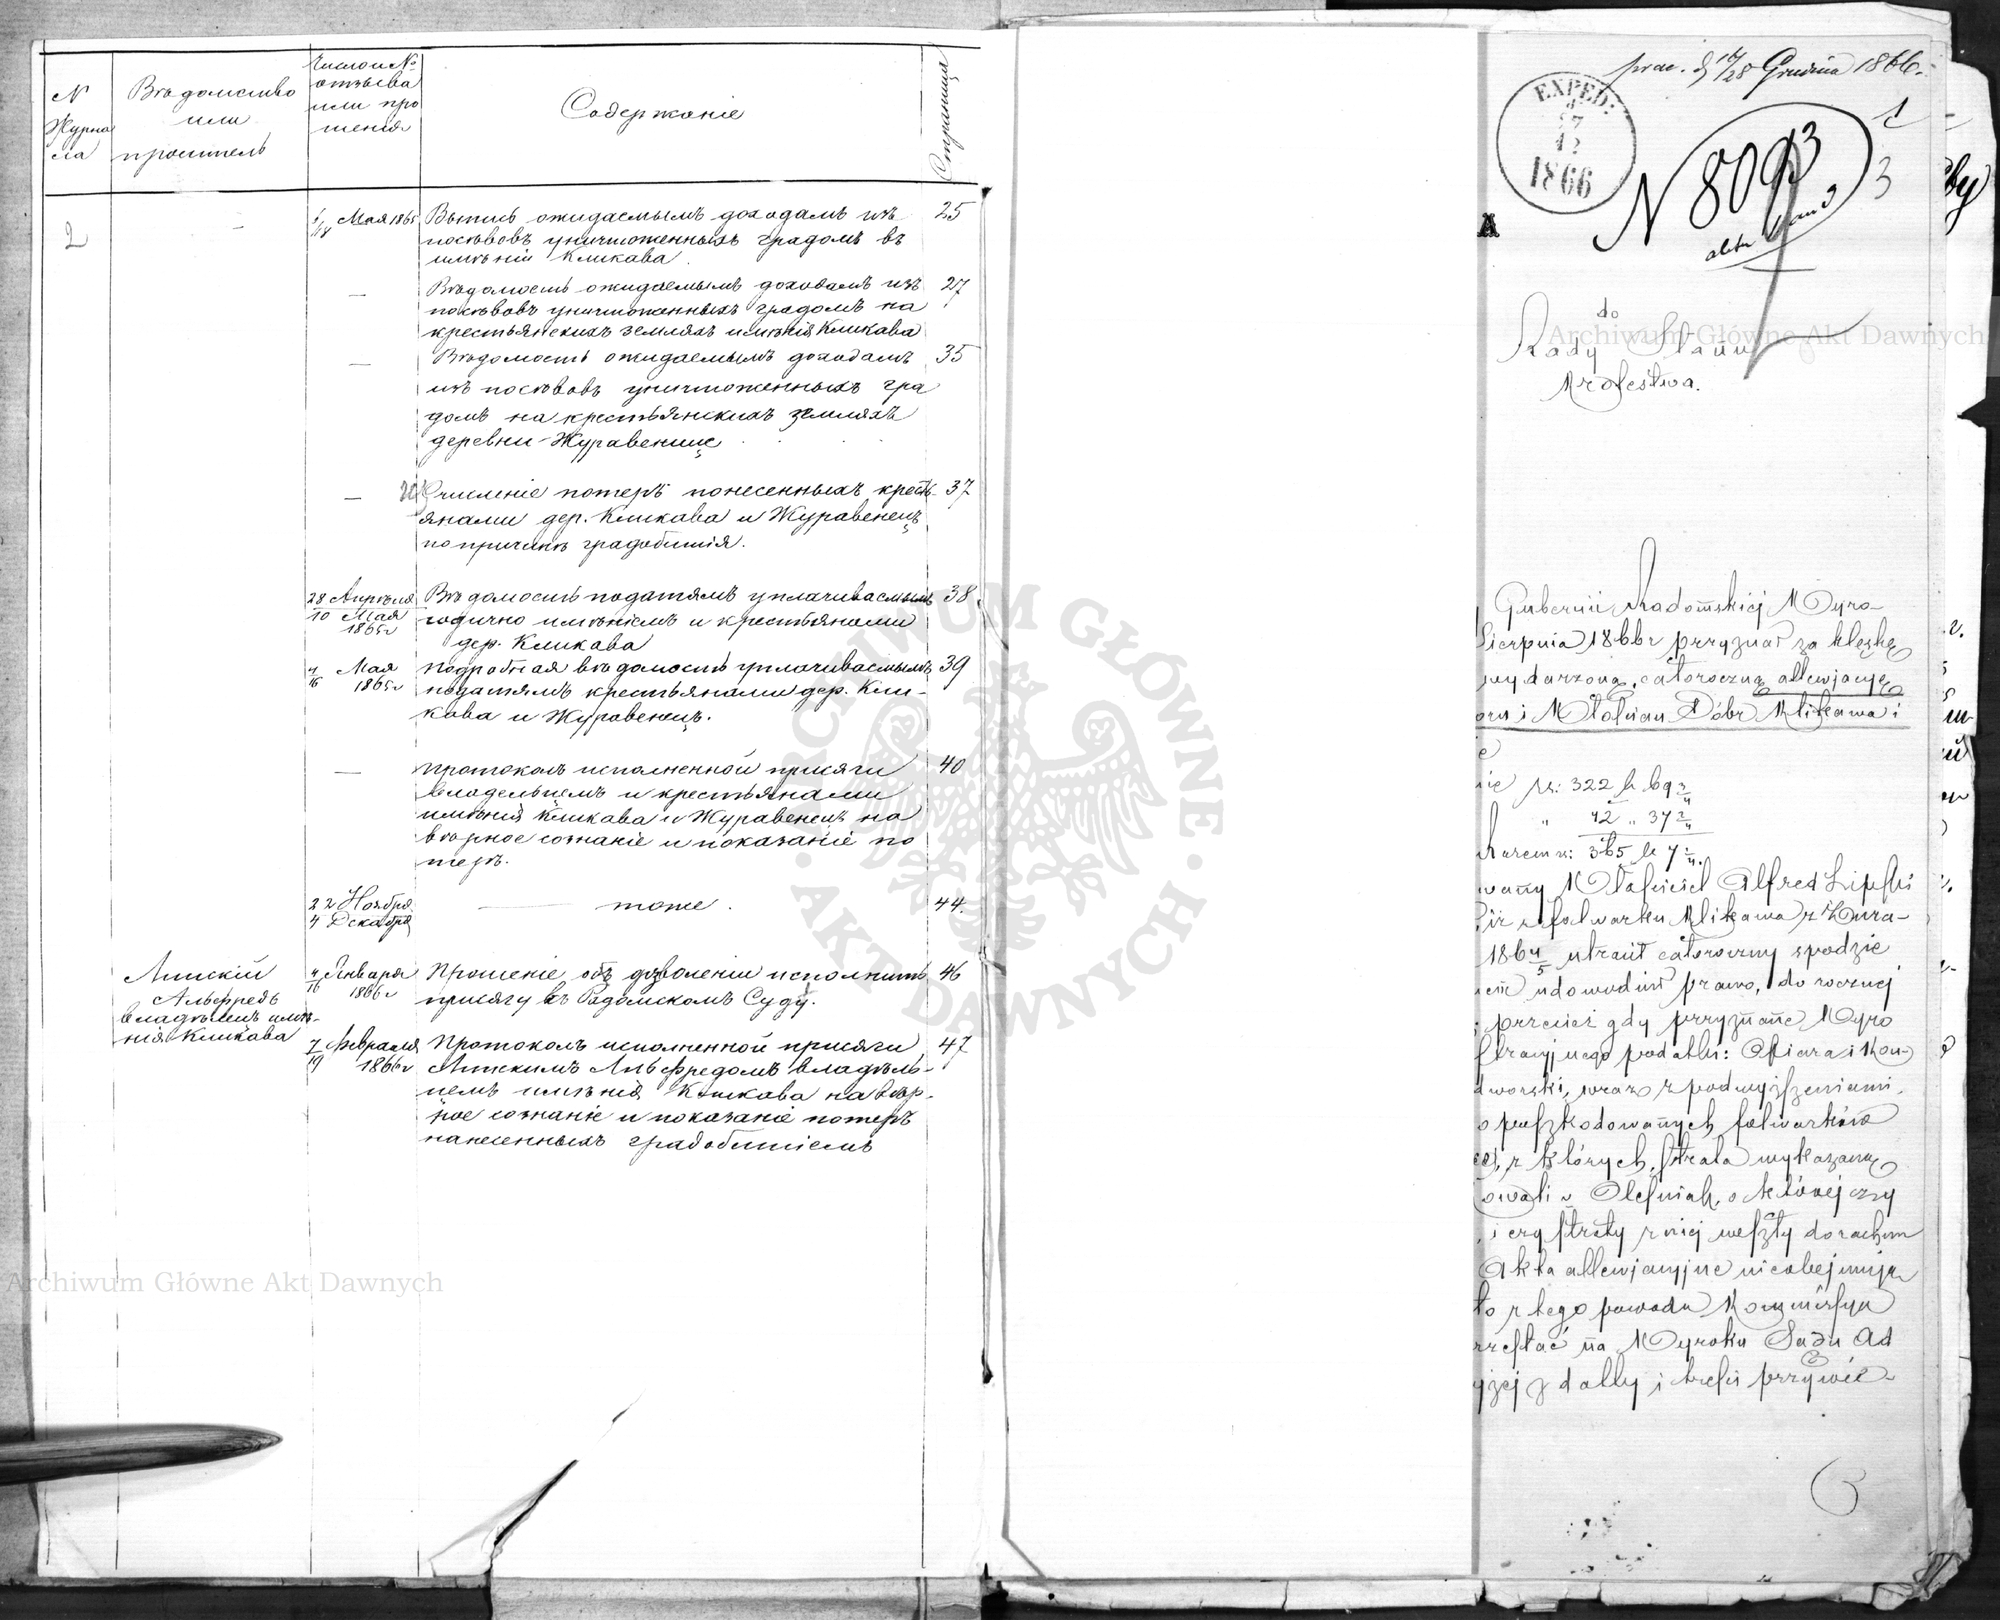 N
Журна
ла
Вѣдомство
или
проситель
Число и №
отзыва
или про
шенія
Содержаніе
Страница
2
6/18 Мая 1865
Выпись ожидаемымъ доходамъ изъ
посѣвовъ уничтоженныхъ градомъ въ
имѣніи Кликава
25
—
Вѣдомость ожидаемымъ доходамъ изъ
посѣвовъ уничтоженныхъ градомъ на
крестьянскихъ земляхъ имѣнія Кликава
27
—
Вѣдомость ожидаемымъ доходамъ
изъ посѣвовъ уничтоженныхъ гра
домъ на крестьянскихъ земляхъ
деревни Журавенице
35
—
Счисленіе потерь понесенныхъ кресть-
янами дер. Кликава и Журавенецъ
по причинѣ градобитія.
37
28 Апрѣля
10 Мая
1865г
Вѣдомость податямъ уплачиваемымъ
годично имѣніемъ и крестьянами
дер. Кликава
38
4/16 Мая
1865г
Подробная вѣдомость уплачиваемымъ
податямъ крестьянами дер. Кли-
кава и Журавенецъ.
39
—
Протоколъ исполненной присяги
владельцемъ и крестьянами
имѣнія Кликава и Журавенецъ на
вѣрное сознаніе и показаніе по
терь.
40
22 Ноября
4 Декабря
— тоже.
44.
Липскій
Альфредъ
владѣлецъ имѣ-
нія Кликава
4/16 Января
1866г
Прошеніе объ дозволеніи исполнить
присягу въ Радомскомъ Суду.
46
7/19 Февраля
1866г
Протоколъ исполненной присяги
Липскимъ Альфредомъ владѣль-
цемъ имѣнія Кликава на вѣр-
ное сознаніе и показаніе потерь
нанесенныхъ градобитіемъ
47
prac. d 17/28 Grudnia 1866.
EXPED:
27
12
1866
N 8093
1
3
A
do
Rady Stanu
Królestwa.
Gubernii Radomskiej Wyro-
Sierpnia 1866r przyznał za klęskę
wydarzoną, całoroczną allewjacyę
i Włościan Dóbr Klikawa i
rs: 322 k 69 3/4
" 42 " 37 3/4
Razem rs: 365 k 7 2/4.
Właściciel Alfred Lipski
folwarku Klikawa z Żura-
1864/5 utracił całoroczny spodzie
udowodnił prawo, do rocznej
przecież gdy przyznane Wyro
podatku: Ofiara i Kon-
dworski, wraz z podwyższeniami
poszkodowanych folwarków
z których, strata wykazaną
Olesniak, o której czy
i czy straty z niej weszły do rachun
Akta allewjacyjne nieobejmują
to z tego powodu Kommissya
na Wyroku Sądu Ad
i treści przywie-
Archiwum Główne Akt Dawnych
Archiwum Główne Akt Dawnych
ARCHIWUM GŁÓWNE
AKT DAWNYCH